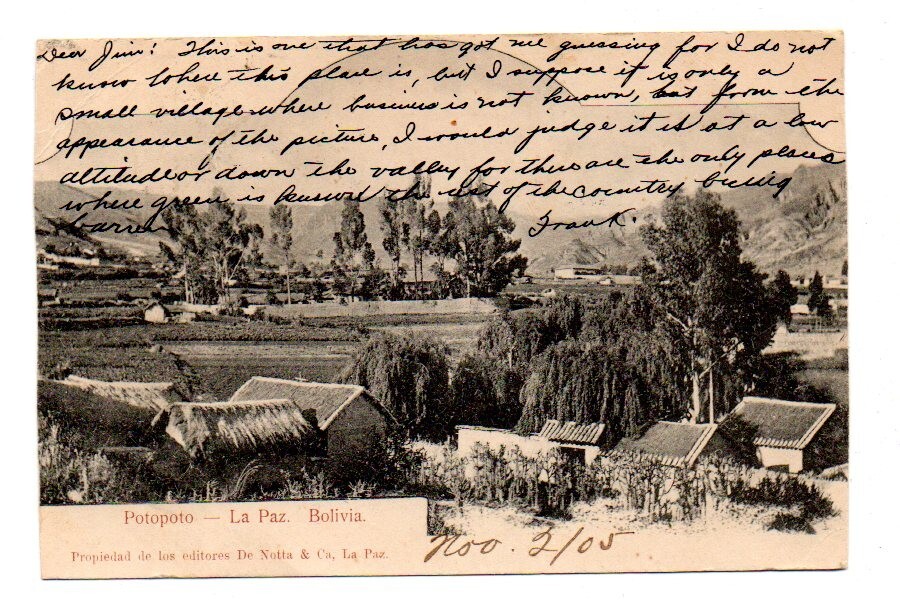 Dear Jim: This is one that has got me guessing for I do not
know where this place is, but I suppose it is only a
small village where business is not known, but from the
appearance of the picture, I would judge it is at a low
altitude or down the valley for there are the only places
where green is the rest of the country being
barren
Frank.
Potopoto — La Paz. Bolivia.
Propiedad de los editores De Notta & Ca, La Paz.
Nov. 2/05